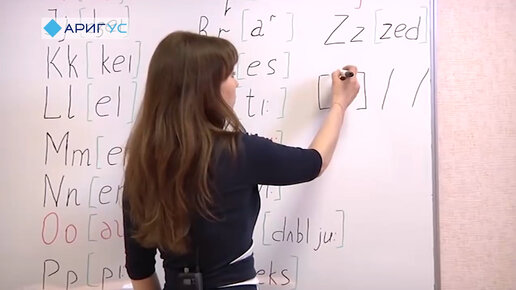 АРИГУС
Kk [kei
Ll [el]
Mm [e
Nn [e
Oo [
Pp [p
Rr [aʳ]
es]
ti:]
[dʌbl ju:]
eks]
Zz [zed]
[ ] / /